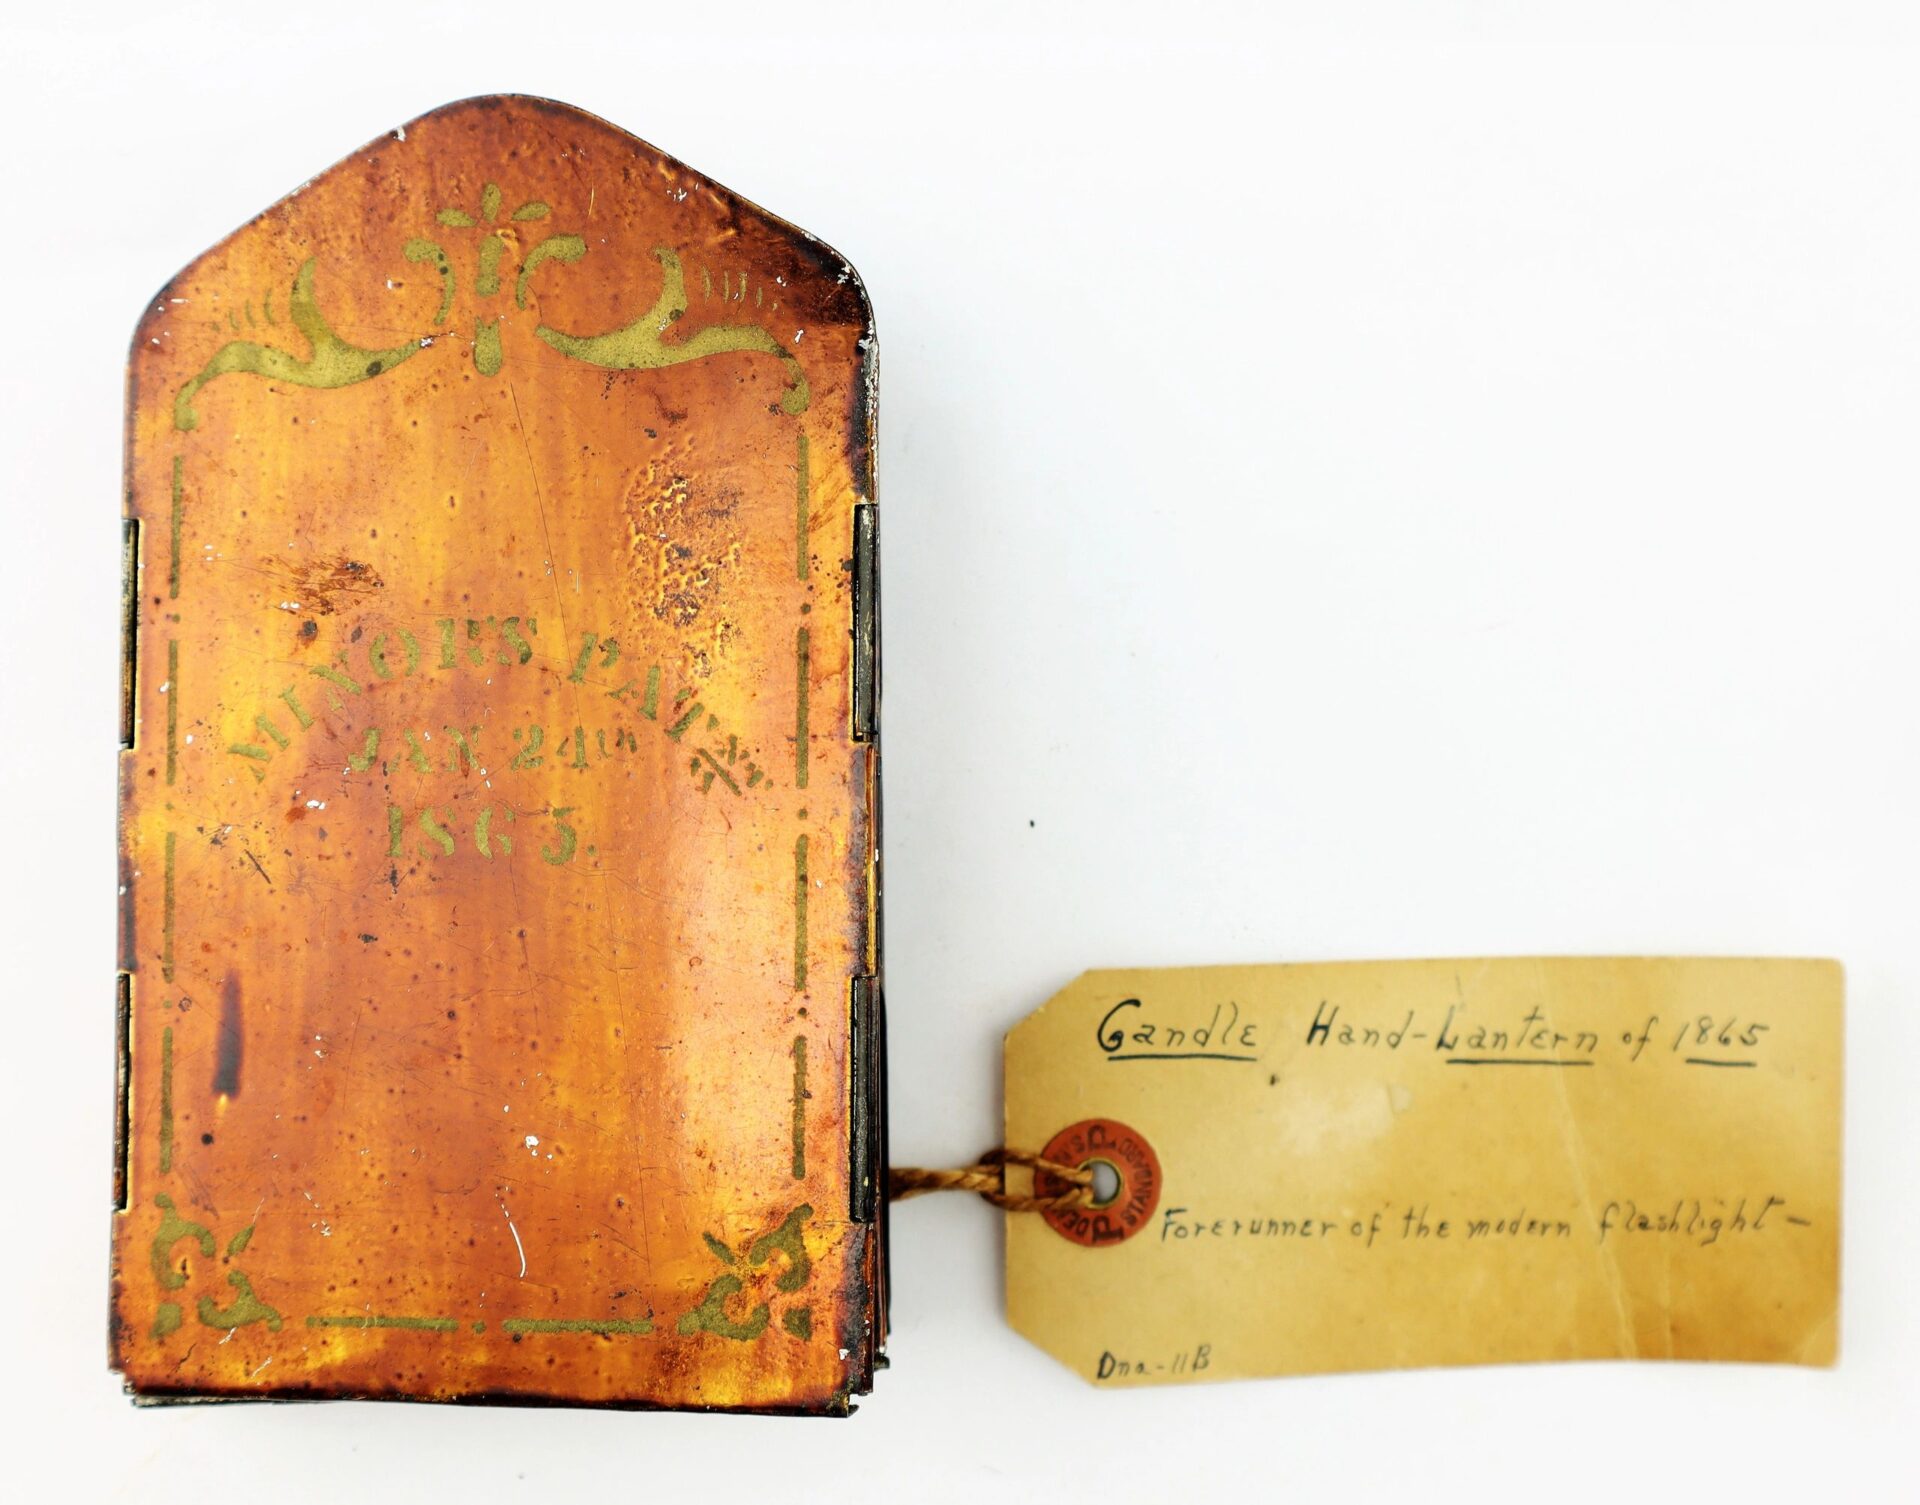 MINOR'S PATENT
JAN 24th
1865.
Candle Hand-Lantern of 1865
Forerunner of the modern flashlight -
Dna-11B